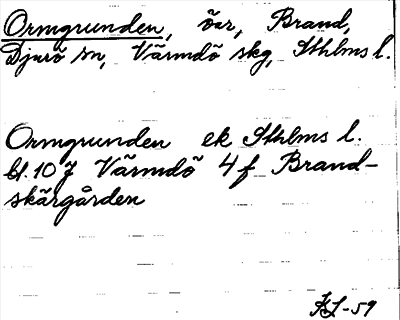 Ormgrunden, öar, Brand,
Djurö sn, Värmdö skg, Sthlms l.
Ormgrunden ek Sthlms l.
bl. 10 J Värmdö 4 f Brand-
skärgården
KL-59